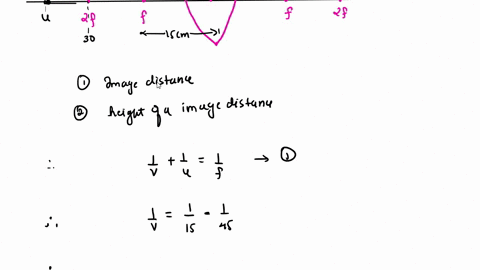 u 2f f f 2f
30 15cm
① Image distance
② height of a image distance
∴ 1/v + 1/u = 1/f → ①
∴ 1/v = 1/15 - 1/45